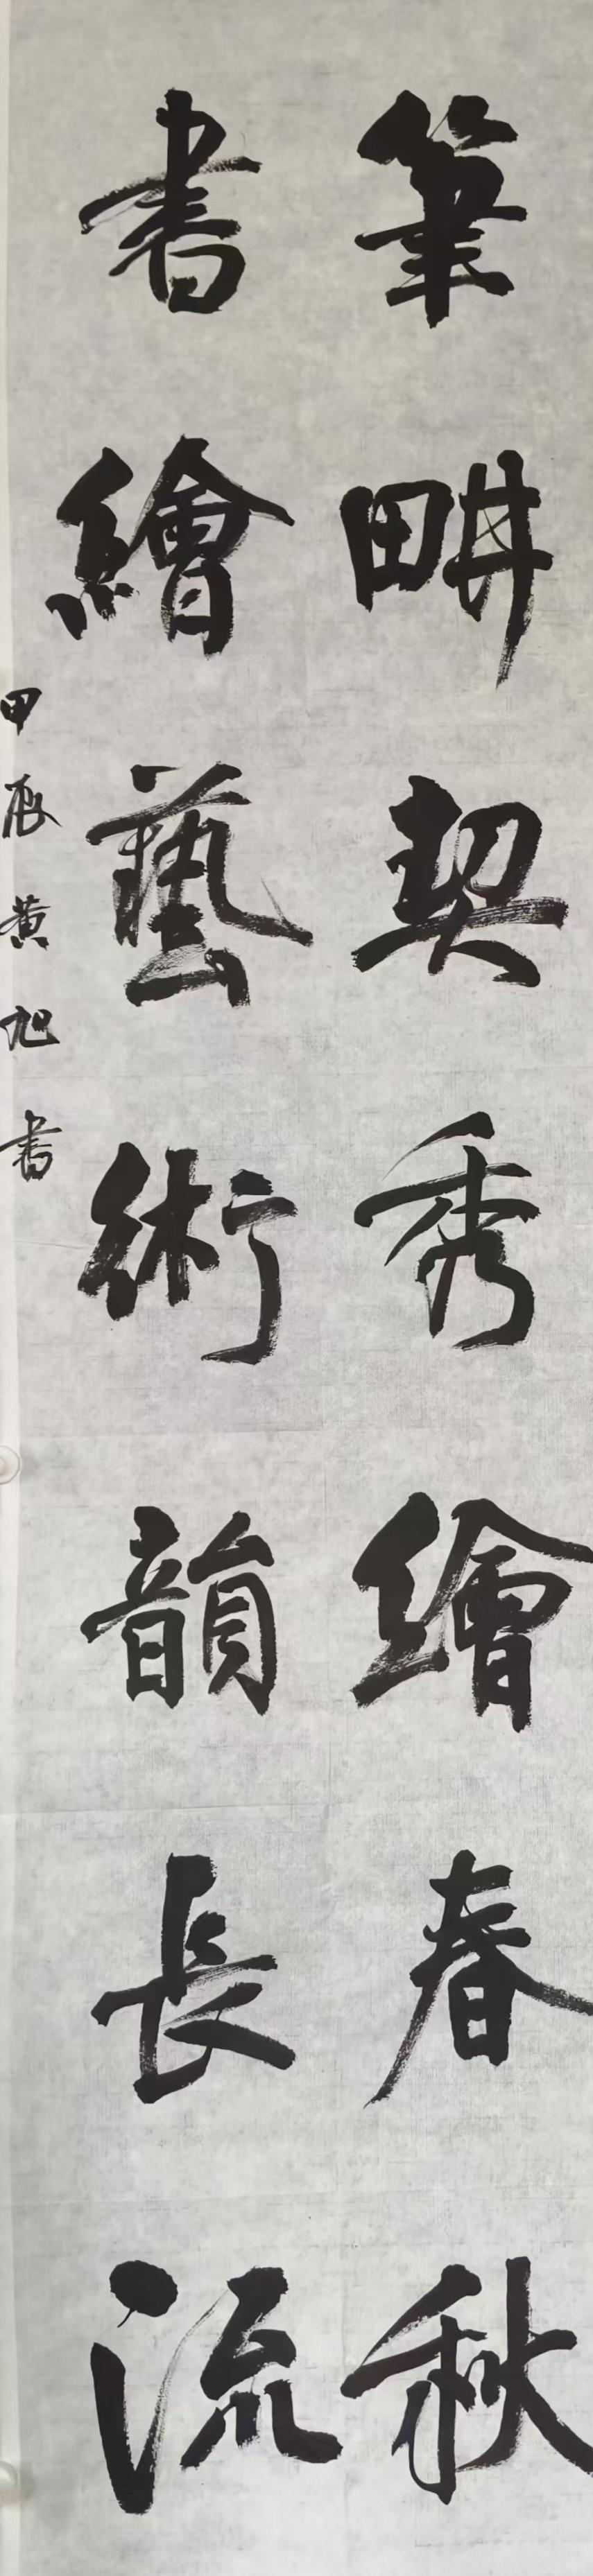 筆畊契秀繪春秋
書繪藝術韻長流
甲辰黄旭書